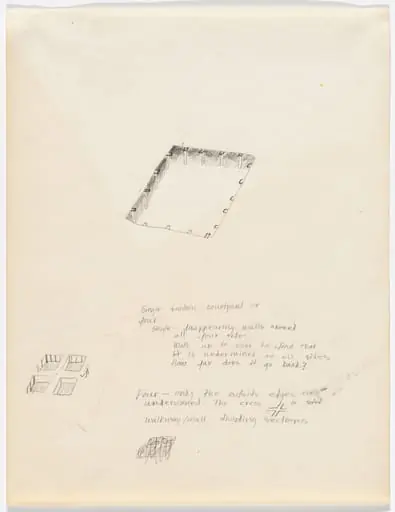 Single sunken courtyard or
four
Single - disappearing walls around
all four sides
Walk up to over to find that
it is undermined on all sides
How far does it go back?
Four — only the outside edges are
undermined The cross is solid
walkway/wall dividing